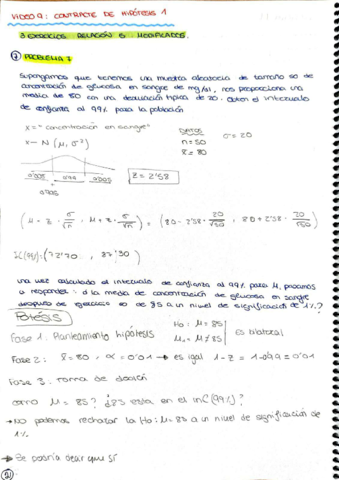 VIDEO 9: CONTRASTE DE HIPÓTESIS 1
3 EJERCICIOS RELACIÓN 5 MODIFICADOS.
⑦ PROBLEMA 7
Supongamos que tenemos una muestra aleatoria de tamaño 50 de
concentración de glucosa en sangre de mg/dl, nos proporciona una
media de 80 con una desviación típica de 20. Obten el intervalo
de confianza al 99% para la población
X = "concentración en sangre"
X ~ N (μ, σ²)
DATOS
n = 50
x̄ = 80
σ = 20
0'005 0'99 0'005
0'995
Z = 2'58
(μ - z · σ/√n , μ + z · σ/√n) = (80 - 2'58 · 20/√50 , 80 + 2'58 · 20/√50)
IC(99%) = (72'70 , 87'30)
una vez calculado el intervalo de confianza al 99% para μ, procamos
a responder: d la media de concentración de glucosa en sangre
después de ejercicio es de 85 a un nivel de significación de 1%?
Fase 1: Planteamiento hipótesis
H₀: μ = 85
H₁ = μ ≠ 85
es bilateral
Fase 2: x̄ = 80 · α = 0'01 → es igal 1-z = 1-0'99 = 0'01
Fase 3: toma de decisión
como μ = 85? ¿85 esta en el inC(99%)?
→ No podemos rechazar la H₀: μ = 85 a un nivel de significación de
1%
→ Se podría decir que sí